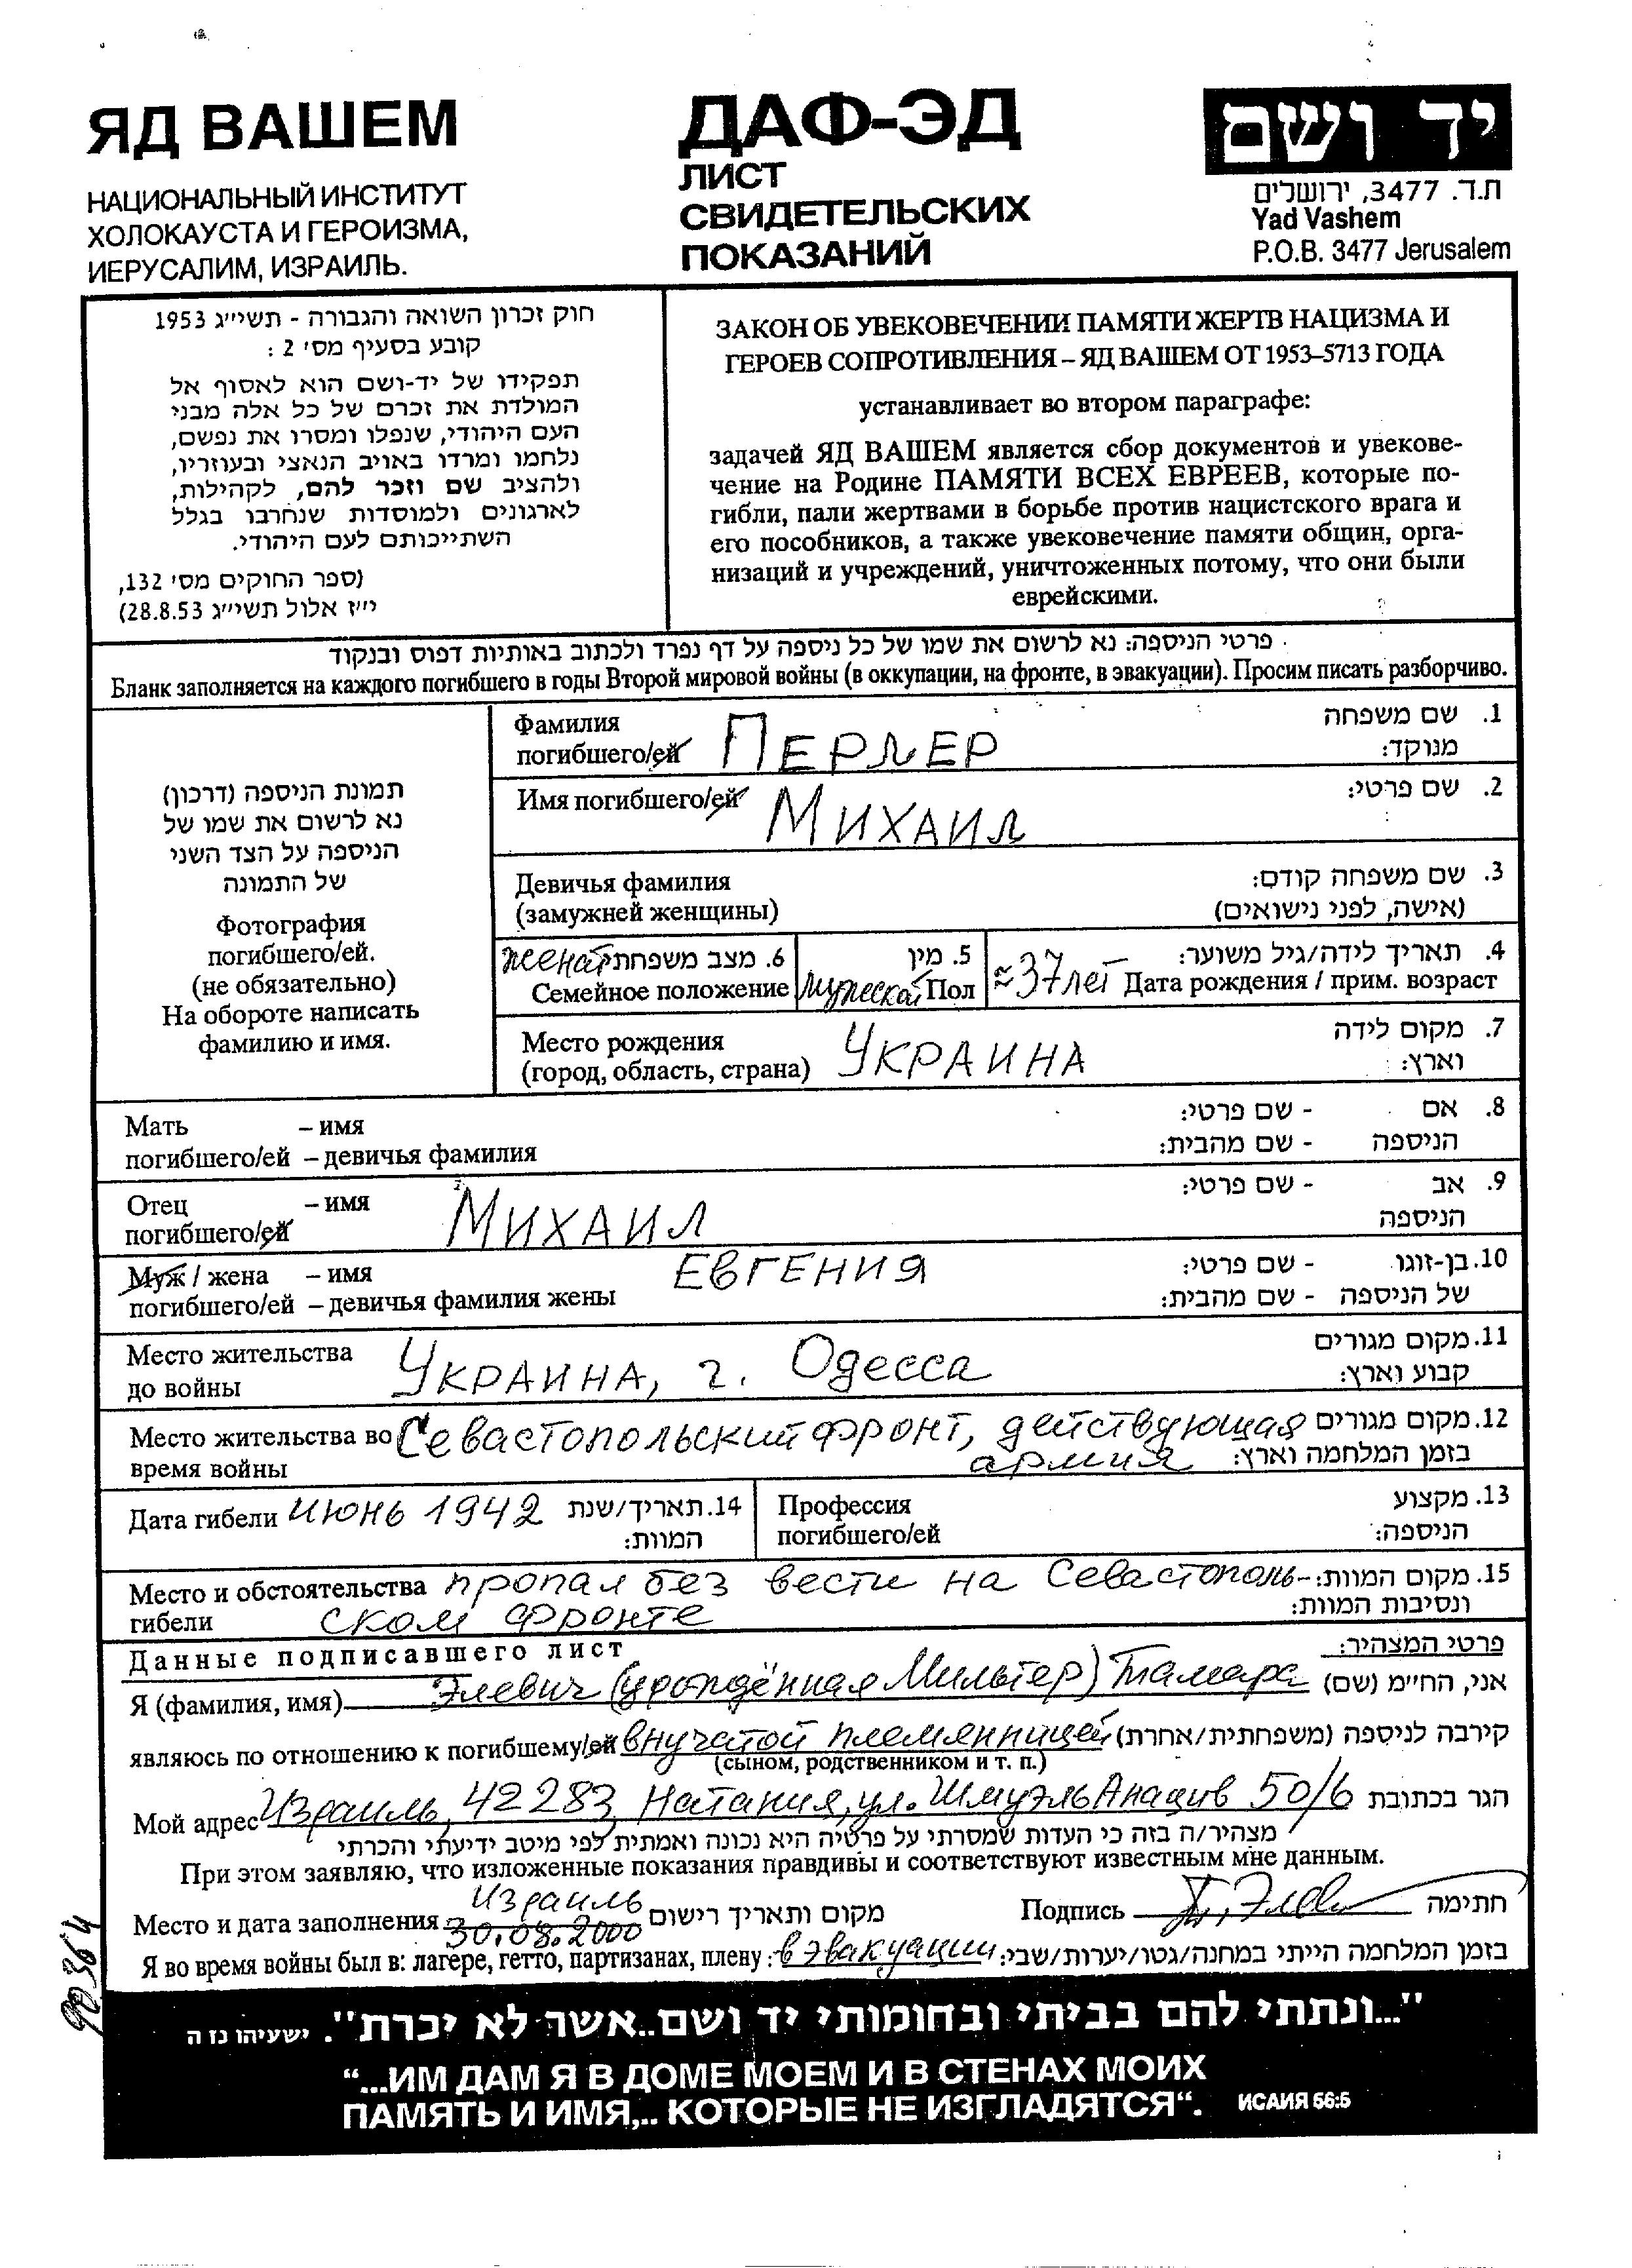 ЯД ВАШЕМ
НАЦИОНАЛЬНЫЙ ИНСТИТУТ
ХОЛОКАУСТА И ГЕРОИЗМА,
ИЕРУСАЛИМ, ИЗРАИЛЬ.
ДАФ-ЭД
ЛИСТ
СВИДЕТЕЛЬСКИХ
ПОКАЗАНИЙ
יד ושם
ת.ד. 3477, ירושלים
Yad Vashem
P.O.B. 3477 Jerusalem
חוק זכרון השואה והגבורה - תשי״ג 1953
קובע בסעיף מס׳ 2 :
תפקידו של יד-ושם הוא לאסוף אל
המולדת את זכרם של כל אלה מבני
העם היהודי, שנפלו ומסרו את נפשם,
נלחמו ומרדו באויב הנאצי ובעוזריו,
ולהציב שם וזכר להם, לקהילות,
לארגונים ולמוסדות שנחרבו בגלל
השתייכותם לעם היהודי.
(ספר החוקים מס׳ 132,
י״ז אלול תשי״ג 28.8.53)
ЗАКОН ОБ УВЕКОВЕЧЕНИИ ПАМЯТИ ЖЕРТВ НАЦИЗМА И
ГЕРОЕВ СОПРОТИВЛЕНИЯ – ЯД ВАШЕМ ОТ 1953–5713 ГОДА
устанавливает во втором параграфе:
задачей ЯД ВАШЕМ является сбор документов и увекове-
чение на Родине ПАМЯТИ ВСЕХ ЕВРЕЕВ, которые по-
гибли, пали жертвами в борьбе против нацистского врага и
его пособников, а также увековечение памяти общин, орга-
низаций и учреждений, уничтоженных потому, что они были
еврейскими.
פרטי הניספה: נא לרשום את שמו של כל ניספה על דף נפרד ולכתוב באותיות דפוס ובנקוד
Бланк заполняется на каждого погибшего в годы Второй мировой войны (в оккупации, на фронте, в эвакуации). Просим писать разборчиво.
תמונת הניספה (דרכון)
נא לרשום את שמו של
הניספה על הצד השני
של התמונה
Фотография
погибшего/ей.
(не обязательно)
На обороте написать
фамилию и имя.
Фамилия 1. שם משפחה
погибшего/ей ПЕРЛЕР מנוקד:
Имя погибшего/ей МИХАИЛ 2. שם פרטי:
Девичья фамилия 3. שם משפחה קודם:
(замужней женщины) (אישה, לפני נישואים)
женат 6. מצב משפחתי 5. מין 4. תאריך לידה/גיל משוער:
Семейное положение мужской Пол ≈37 лет Дата рождения / прим. возраст
Место рождения 7. מקום לידה
(город, область, страна) УКРАИНА וארץ:
Мать – имя 8. אם - שם פרטי:
погибшего/ей – девичья фамилия הניספה - שם מהבית:
Отец – имя 9. אב - שם פרטי:
погибшего/ей МИХАИЛ הניספה
Муж / жена – имя ЕВГЕНИЯ 10. בן-זוגו - שם פרטי:
погибшего/ей – девичья фамилия жены של הניספה - שם מהבית:
Место жительства 11. מקום מגורים
до войны УКРАИНА, г. Одесса קבוע וארץ:
Место жительства во Севастопольский фронт, действующая 12. מקום מגורים
время войны армия בזמן המלחמה וארץ:
Дата гибели июнь 1942 14. תאריך/שנת
המוות:
Профессия 13. מקצוע
погибшего/ей הניספה:
Место и обстоятельства пропал без вести на Севастополь- 15. מקום המוות:
гибели ском фронте ונסיבות המוות:
Данные подписавшего лист פרטי המצהיר:
Я (фамилия, имя) Элевич (урождённая Мильтер) Тамара אני, הח״מ (שם)
являюсь по отношению к погибшему/ей внучатой племянницей קירבה לניספה (משפחתית/אחרת)
(сыном, родственником и т. п.)
Мой адрес Израиль, 42283, Натания, ул. Шмуэль Анацив 50/6 הגר בכתובת
מצהיר/ה בזה כי העדות שמסרתי על פרטיה היא נכונה ואמתית לפי מיטב ידיעתי והכרתי
При этом заявляю, что изложенные показания правдивы и соответствуют известным мне данным.
Израиль
Место и дата заполнения 30.08.2000 מקום ותאריך רישום Подпись חתימה
Я во время войны был в: лагере, гетто, партизанах, плену: в эвакуации בזמן המלחמה הייתי במחנה/גטו/יערות/שבי:
90364
"...ונתתי להם בביתי ובחומותי יד ושם..אשר לא יכרת". ישעיהו נז ה
“...ИМ ДАМ Я В ДОМЕ МОЕМ И В СТЕНАХ МОИХ
ПАМЯТЬ И ИМЯ,.. КОТОРЫЕ НЕ ИЗГЛАДЯТСЯ“. ИСАИЯ 56:5